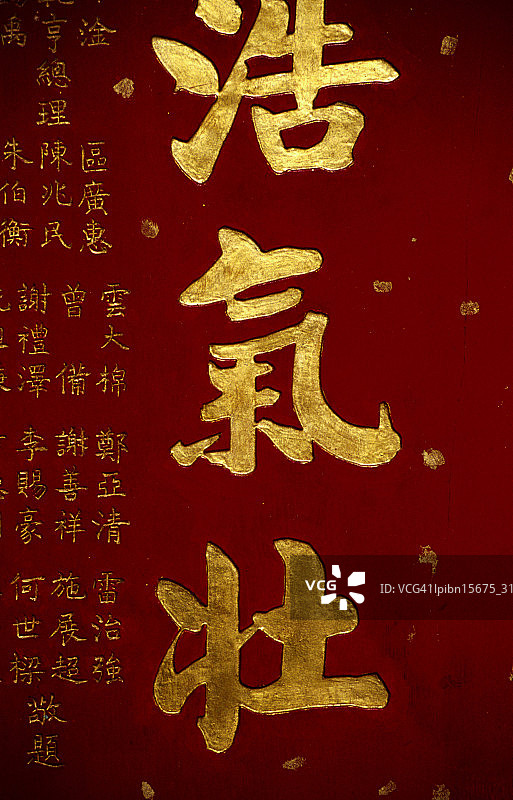 浩氣壯
淦 區廣惠 雲大棉 鄭亞清 雷治強
亨總理 陳兆民 曾備 謝善祥 施展超
禹 朱伯衡 謝禮澤 李賜豪 何世樑
敬題
VCG
ID: VCG41lpibn15675_31